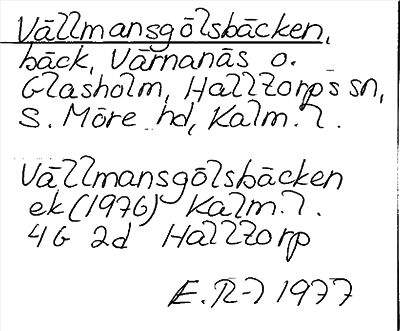 Vällmansgölsbäcken,
bäck, Värnanäs o.
Glasholm, Halltorps sn,
S. Möre hd, Kalm. l.
Vällmansgölsbäcken
ek (1976) Kalm. l.
4G 2d Halltorp
E. R-) 1977